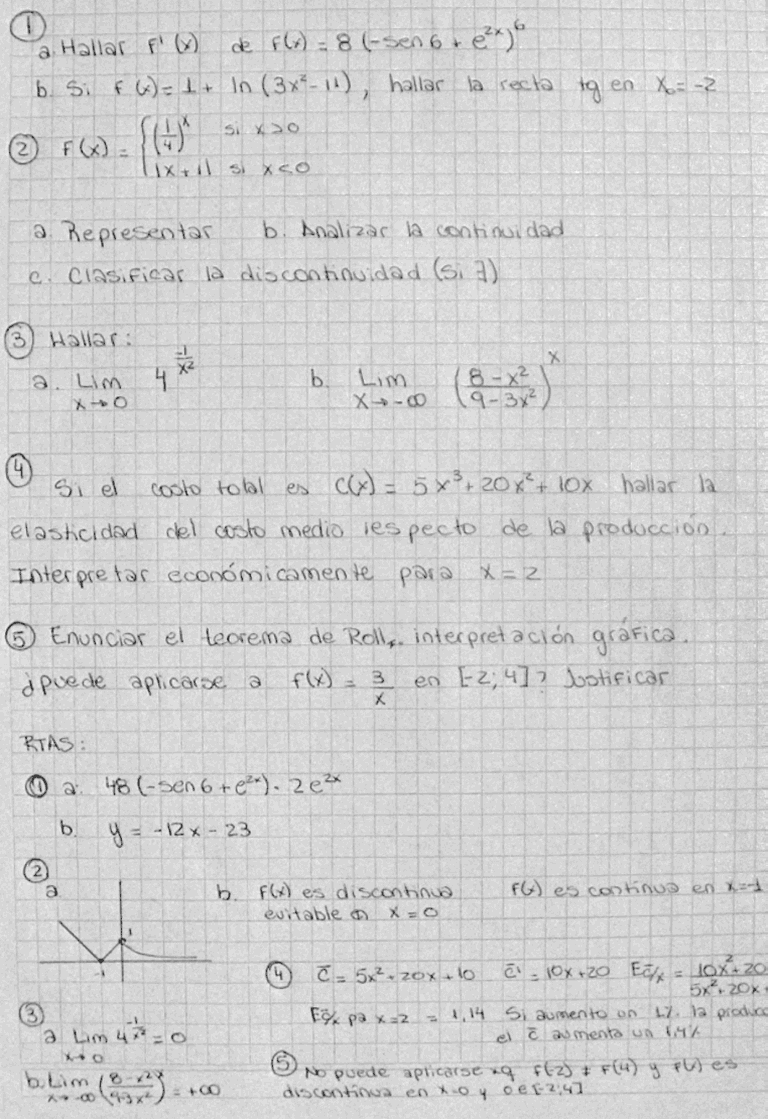 ①
a. Hallar f'(x) de f(x) = 8 (-sen 6 + e^{2x})^6
b. Si f(x) = 1 + ln (3x² - 11), hallar la recta tg en x₀ = -2
② F(x) = { (1/4)^x si x > 0
|x + 1| si x < 0
a. Representar b. Analizar la continuidad
c. Clasificar la discontinuidad (si ∃)
③ Hallar:
a. Lim x→0 4^{-1/x²} b. Lim x→-∞ ((8 - x²)/(9 - 3x²))^x
④
Si el costo total es C(x) = 5x³ + 20x² + 10x hallar la
elasticidad del costo medio respecto de la producción.
Interpretar económicamente para x = 2
⑤ Enunciar el teorema de Rolle. interpretación gráfica.
¿puede aplicarse a f(x) = 3/x en [-2; 4]? Justificar
RTAS:
① a. 48 (-sen 6 + e^{2x}) · 2e^{2x}
b. y = -12x - 23
②
a
1
-1
b. F(x) es discontinua F(x) es continua en x=-1
evitable en x = 0
③
a Lim x→0 4^{-1/x²} = 0
b. Lim x→-∞ = +∞
④ C̄ = 5x² + 20x + 10 C̄' = 10x + 20 EC̄/x = 10x² + 20 / 5x² + 20x +
EC̄/x pa x=2 = 1,14 Si aumento un 1% la produc
el C̄ aumenta un 1,4%
⑤ No puede aplicarse xq f(-2) ≠ f(4) y f(x) es
discontinua en x=0 y 0 ∈ [-2; 4]